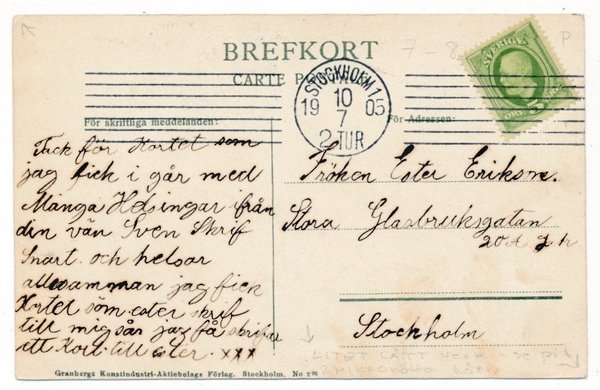 BREFKORT
CARTE POSTALE
STOCKHOLM 1
19 10 05
7
2 TUR
SVERIGE
5
För skriftliga meddelanden:
För Adressen:
Tack för Kortet som
jag fick i går med
Många Helsingar ifrån
din vän Sven Skrif
Snart och helsar
allesamman jag fick
Kortet som ester skrif
till mig sår jag få skrifva
ett Kort till Ester. xxx
Fröken Ester Erikson.
Stora Glasbruksgatan
20
Stockholm
7-8
P
LITET LÄTT VECK
Granbergs Konstindustri-Aktiebolags Förlag. Stockholm. No 276